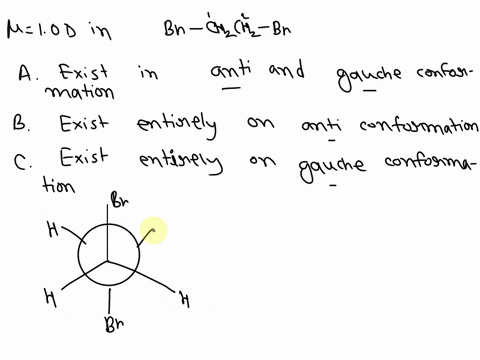 μ=1.0D in Br-CH₂CH₂-Br
1 2
A. Exist in anti and gauche confor-
mation
B. Exist entirely on anti conformation
C. Exist entirely on gauche conforma-
tion
Br
H
H
H
Br